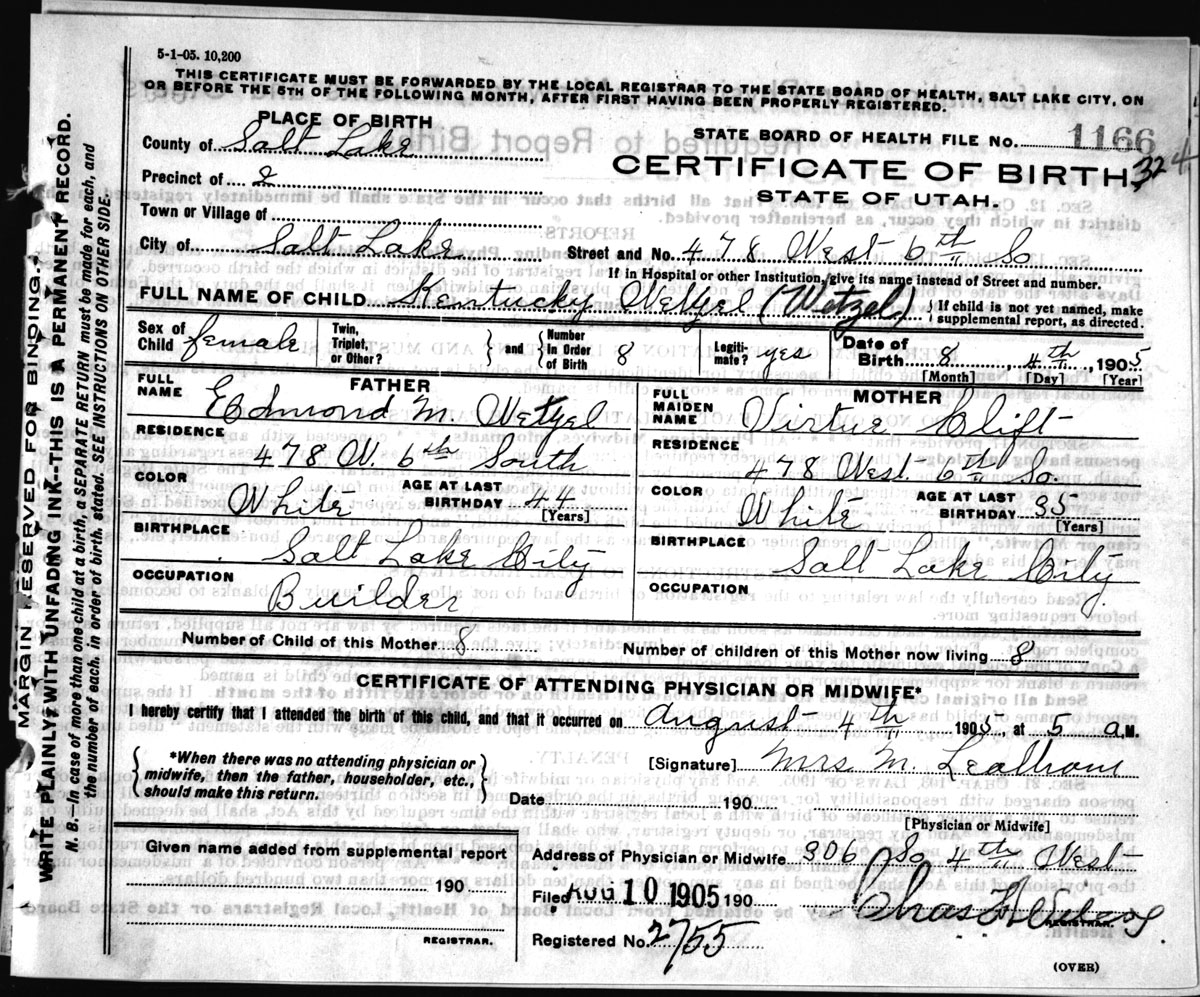 5-1-05. 10,200
THIS CERTIFICATE MUST BE FORWARDED BY THE LOCAL REGISTRAR TO THE STATE BOARD OF HEALTH, SALT LAKE CITY, ON
OR BEFORE THE 5TH OF THE FOLLOWING MONTH, AFTER FIRST HAVING BEEN PROPERLY REGISTERED.
PLACE OF BIRTH
STATE BOARD OF HEALTH FILE No. 1166
County of Salt Lake
CERTIFICATE OF BIRTH. 324
Precinct of 2
STATE OF UTAH.
Town or Village of
City of Salt Lake Street and No. 478 West 6th So
If in Hospital or other Institution, give its name instead of Street and number.
FULL NAME OF CHILD Kentucky Wetzel (Wetzel) {If child is not yet named, make
supplemental report, as directed.
Sex of Child female Twin, Triplet, or Other? } and { Number In Order of Birth 8 Legiti-mate? yes Date of Birth 8 4th, 1905
[Month] [Day] [Year]
FATHER
FULL NAME Edmond M. Wetzel
RESIDENCE
478 W. 6th South
COLOR White AGE AT LAST BIRTHDAY 44
[Years]
BIRTHPLACE
Salt Lake City
OCCUPATION
Builder
MOTHER
FULL MAIDEN NAME Virtue Clift
RESIDENCE
478 West 6th So.
COLOR White AGE AT LAST BIRTHDAY 35
[Years]
BIRTHPLACE
Salt Lake City.
OCCUPATION
Number of Child of this Mother 8 Number of children of this Mother now living 8
CERTIFICATE OF ATTENDING PHYSICIAN OR MIDWIFE*
I hereby certify that I attended the birth of this child, and that it occurred on August 4th 1905, at 5 a.M.
{*When there was no attending physician or
midwife, then the father, householder, etc.,
should make this return.}
[Signature] Mrs M.
Date 190
[Physician or Midwife]
Given name added from supplemental report
190
REGISTRAR.
Address of Physician or Midwife 306 So 4th West
Filed AUG 10 1905 190 Chas
REGISTRAR.
Registered No. 2755
(OVER)
MARGIN RESERVED FOR BINDING.
WRITE PLAINLY WITH UNFADING INK--THIS IS A PERMANENT RECORD.
N. B.--In case of more than one child at a birth, a SEPARATE RETURN must be made for each, and
the number of each, in order of birth, stated. SEE INSTRUCTIONS ON OTHER SIDE.